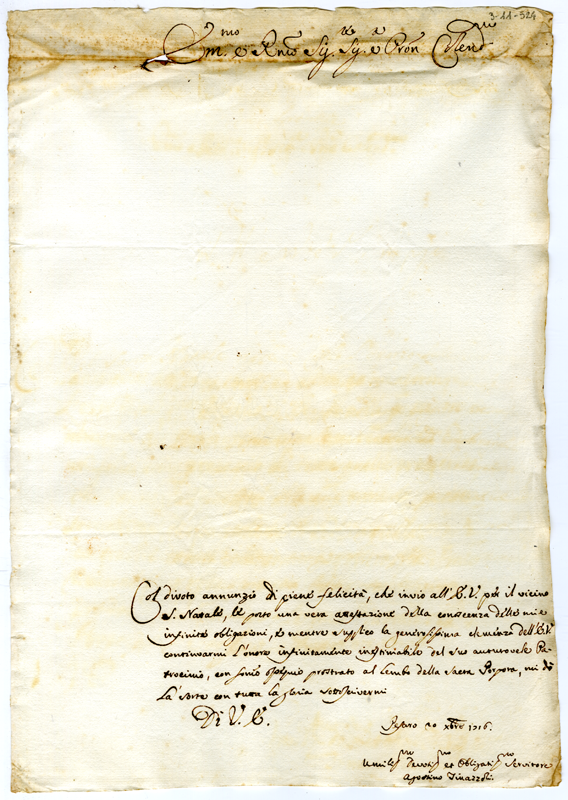 3-11-524
Em.mo e Rmo Sig. Sig.re e Pron Colend.mo
Col divoto annunzio di piene felicità, che invio all'E.V. per il vicino
S. Natale, le porto una vera attestazione della conoscenza delle mie
infinite obligazioni, e mentre supplico la generosissima clemenza dell'E.V.
continuarmi l'onore infinitamente inestimabile del suo autorevole Pa-
trocinio, con somo ossequio prostrato al Lembo della Sacra Porpora, mi dò
La sorte con tutta la gloria sottoscivermi
Di V. E.
Pesaro 20 Xbre 1716.
Umiliss.mo Devotiss.mo et Obligatiss.mo Servitore
Agostino